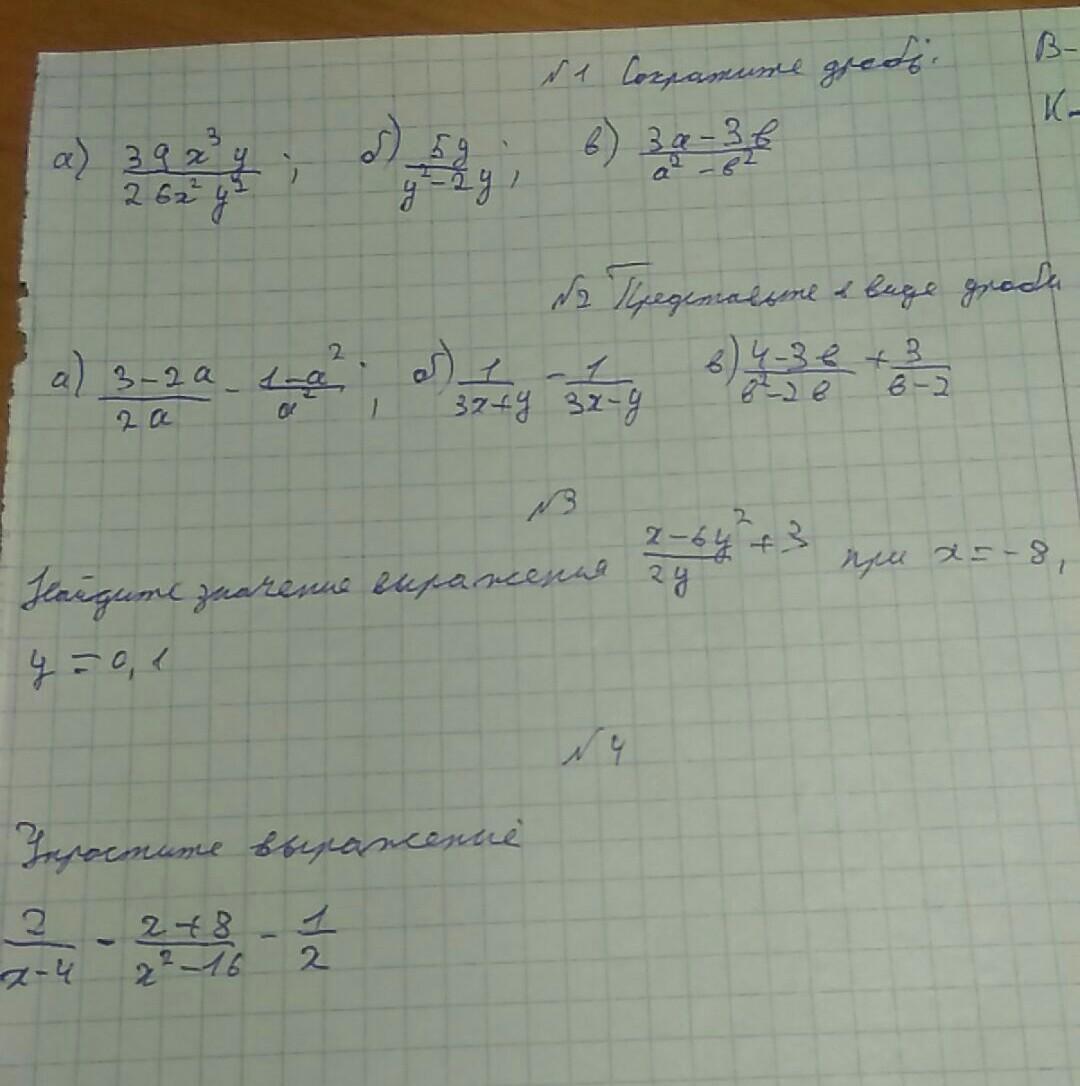 №1 Сократите дробь: В-
К-
а) 39x³y/26x²y²; б) 5y/y²-2y; в) 3а-3в/а²-в²
№2 Представьте в виде дроби
а) 3-2а/2а - 1-а²/а²; б) 1/3x+y - 1/3x-y в) 4-3в/в²-2в + 3/в-2
№3
Найдите значение выражения x-6y²/2y + 3 при x=-8,
y=0,1
№4
Упростите выражение
2/x-4 - x+8/x²-16 - 1/x